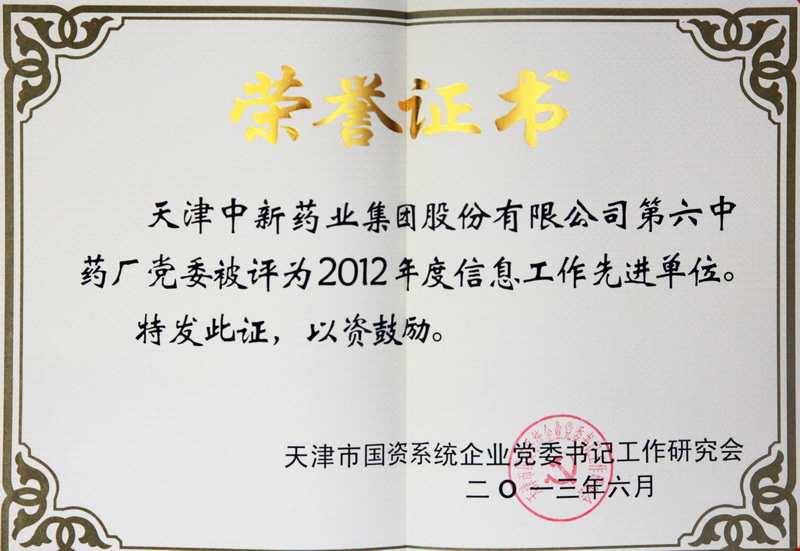 荣誉证书
天津中新药业集团股份有限公司第六中
药厂党委被评为2012年度信息工作先进单位。
特发此证，以资鼓励。
天津市国资系统企业党委书记工作研究会
二〇一三年六月